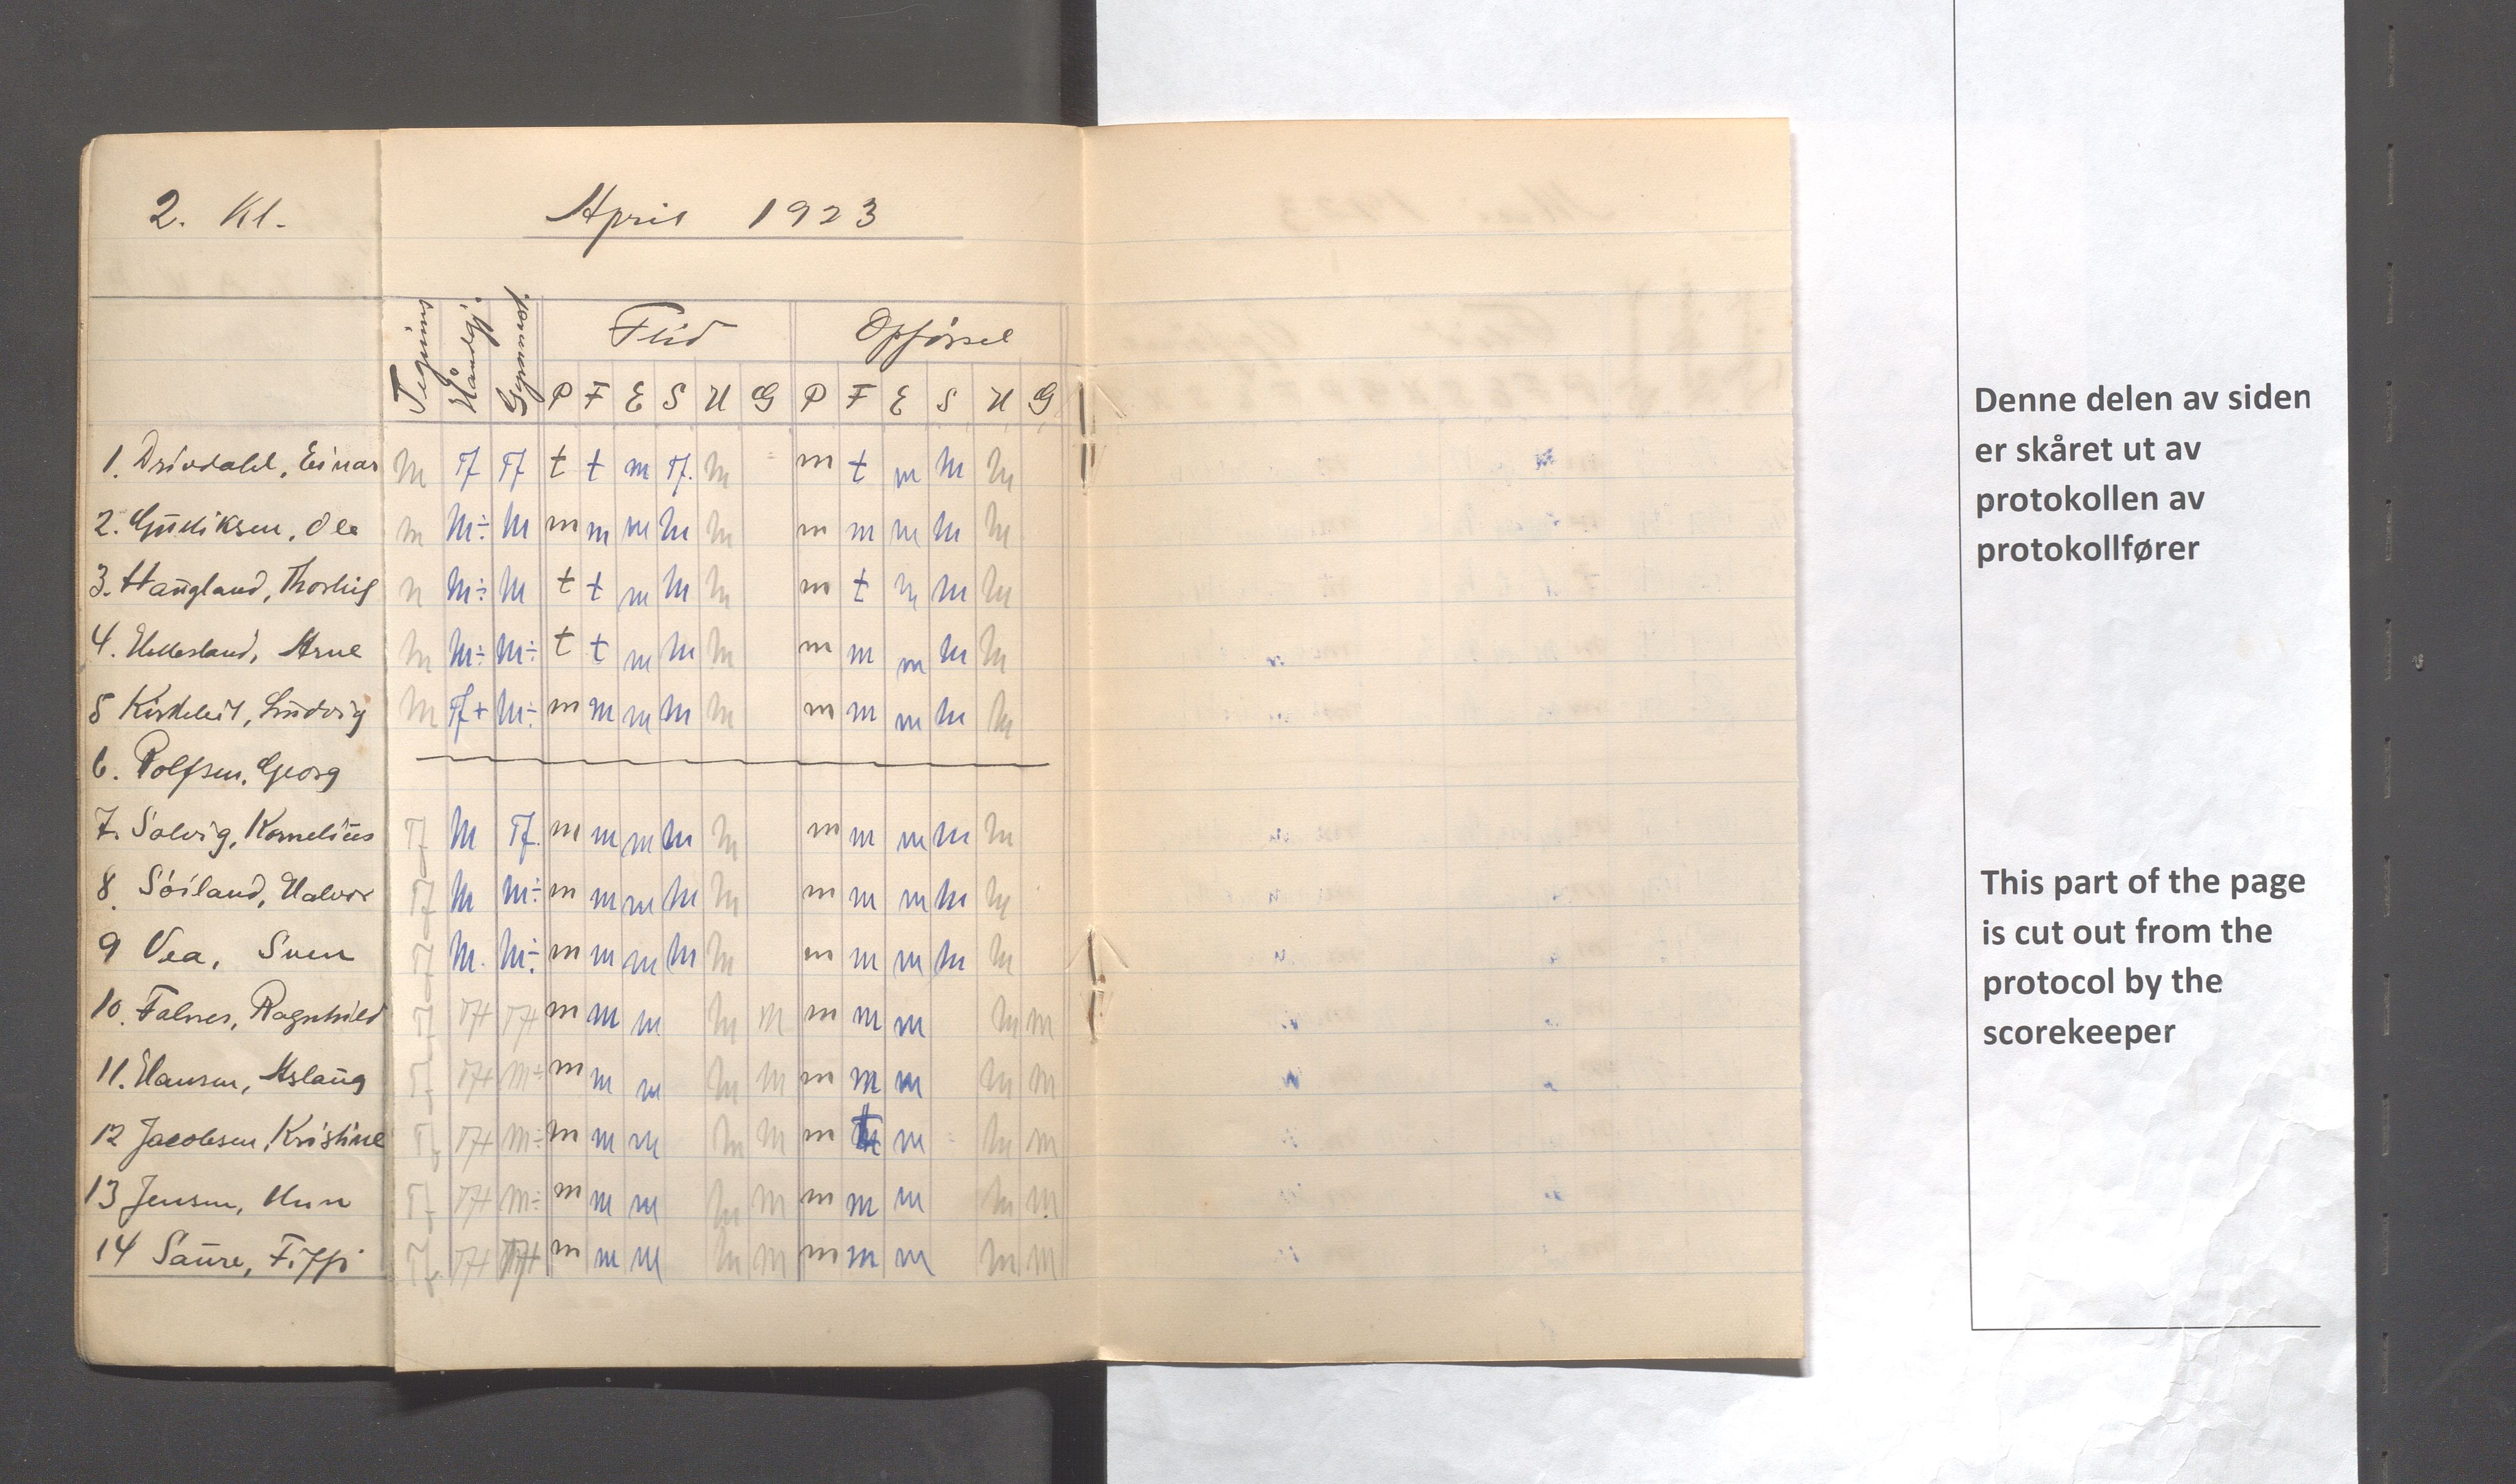 2. Kl. April 1923
Tegning Håndgj. Gymnast. Flid Opførsel
P F E S H G P F E S H G
1. Drivdahl, Einar m Tf Tf t t m Tf. m m t m m m
2. Gudiksen, Ole m m÷ m m m m m m m m m m m
3. Haugland, Thorleif m m÷ m t t m m m m t m m m
4. Hellesland, Arne m m÷ m÷ t t m m m m m m m m
5 Kirkeleit, Ludvig m Tf+ m÷ m m m m m m m m m m
6. Rolfsen, Georg
7. Solvig, Kornelius Tf m Tf. m m m m m m m m m m
8. Søiland, Halvor Tf m m÷ m m m m m m m m m m
9 Vea, Sven Tf m. m÷ m m m m m m m m m m
10. Falnes, Ragnhild Tf Tf Tf m m m m m m m m m m
11. Hansen, Aslaug Tf Tf m÷ m m m m m m m m m m
12 Jacobsen, Kristine Tf Tf m÷ m m m m m m t m m m
13 Jensen, Tf Tf m÷ m m m m m m m m m m
14 Saure, Tf Tf Tf m m m m m m m m m m
Denne delen av siden
er skåret ut av
protokollen av
protokollfører
This part of the page
is cut out from the
protocol by the
scorekeeper